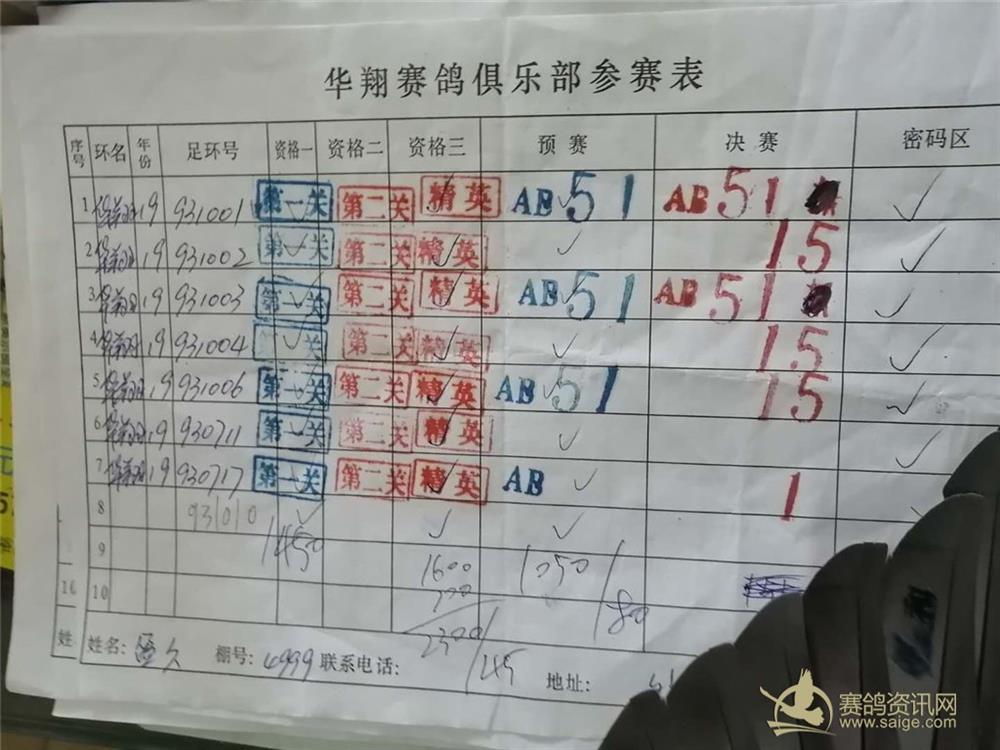 华翔赛鸽俱乐部参赛表
序号 环名 年份 足环号 资格一 资格二 资格三 预赛 决赛 密码区
1 华翔 19 931001 第一关 第二关 精英 AB 51 AB 51
2 华翔 19 931002 第一关 第二关 精英 15
3 华翔 19 931003 第一关 第二关 精英 AB 51 AB 51
4 华翔 19 931004 一关 第二关 精英 15
5 华翔 19 931006 第一关 第二关 精英 AB 51 15
6 华翔 19 930711 第一关 第二关 精英
7 华翔 19 930717 第一关 第二关 精英 AB 1
8 931010
9 1450 1600 1050
10 700 180
2300
姓名: 棚号: 4999 联系电话: 145 地址:
16
姓
赛鸽资讯网
www.saige.com